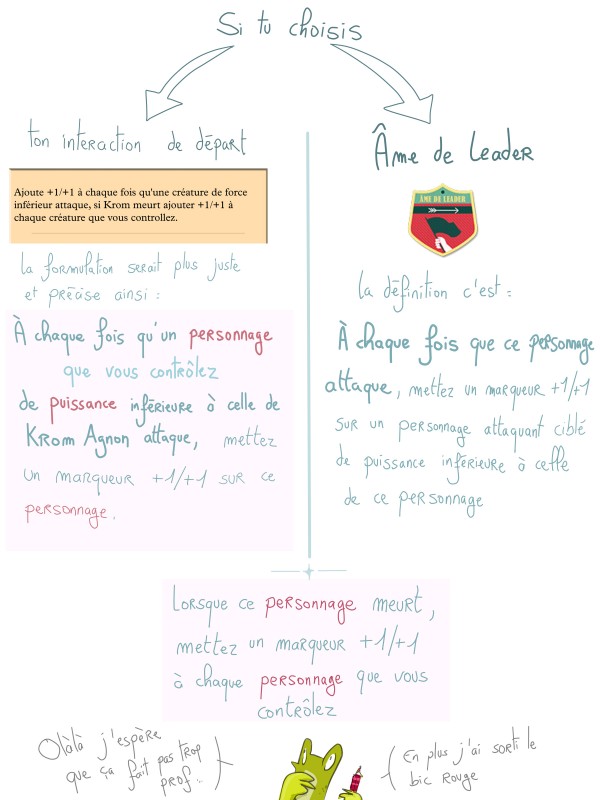 Si tu choisis
ton interaction de départ
Ajoute +1/+1 à chaque fois qu'une créature de force
inférieur attaque, si Krom meurt ajouter +1/+1 à
chaque créature que vous controllez.
la formulation serait plus juste
et précise ainsi :
À chaque fois qu'un personnage
que vous contrôlez
de puissance inférieure à celle de
Krom Agnon attaque, mettez
un marqueur +1/+1 sur ce
personnage.
Âme de Leader
ÂME DE LEADER
la définition c'est :
À chaque fois que ce personnage
attaque, mettez un marqueur +1/+1
sur un personnage attaquant ciblé
de puissance inférieure à celle
de ce personnage
Lorsque ce personnage meurt,
mettez un marqueur +1/+1
à chaque personnage que vous
contrôlez
Olàlà j'espère
que ça fait pas trop
prof..
En plus j'ai sorti le
bic rouge